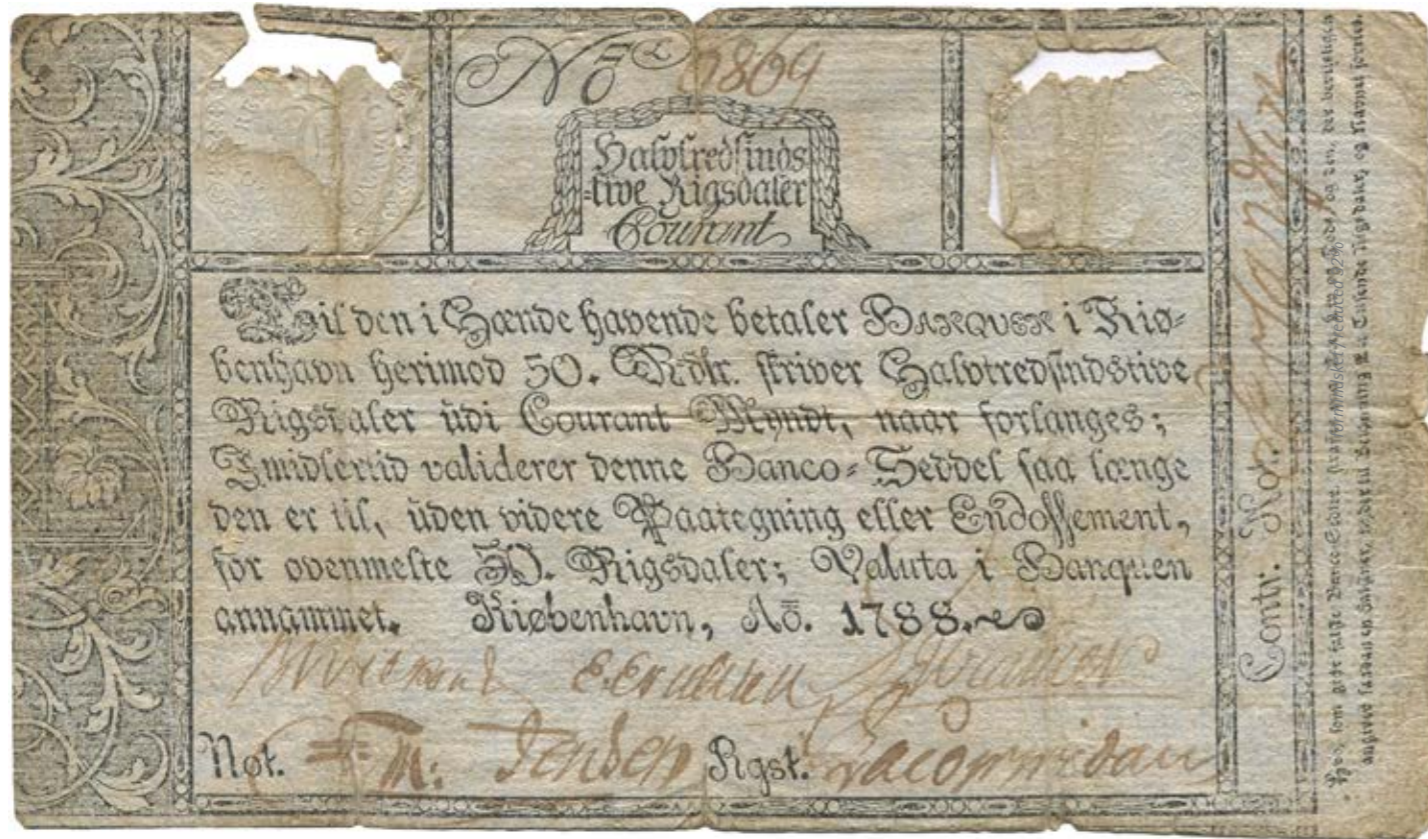 No 6869
Halvtredsinds
=tive Rigsdaler
Courant
Til den i Hænde havende betaler BANQUEN i Kiø-
benhavn herimod 50. Rdlr. skriver Halvtredsindstive
Rigsdaler udi Courant Myndt, naar forlanges;
Imidlertid validerer denne Banco=Seddel saa længe
den er til, uden videre Paategning eller Endossement,
for ovenmelte 50. Rigsdaler; Valuta i Banquen
annammet. Kiøbenhavn, Aō. 1788.
Not. Jensen Rgst.
Contr. Not.
Hvo, som giør falske Banco-Sedler, og den, der beviislig
angiver saadan en Falskner, skal til Belønning Et Tusende Rigsdaler, og Navnet forties.